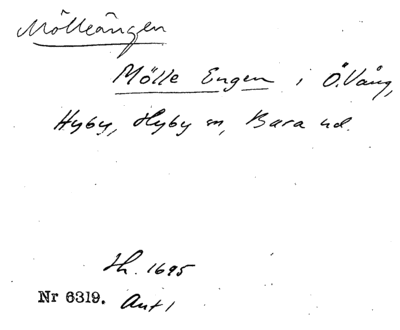 Mölleängen
Mölle Engen i Ö. Vång,
Hyby, Hyby sn, Bara hd.
Jh. 1695
Nr 6319. Akt 1